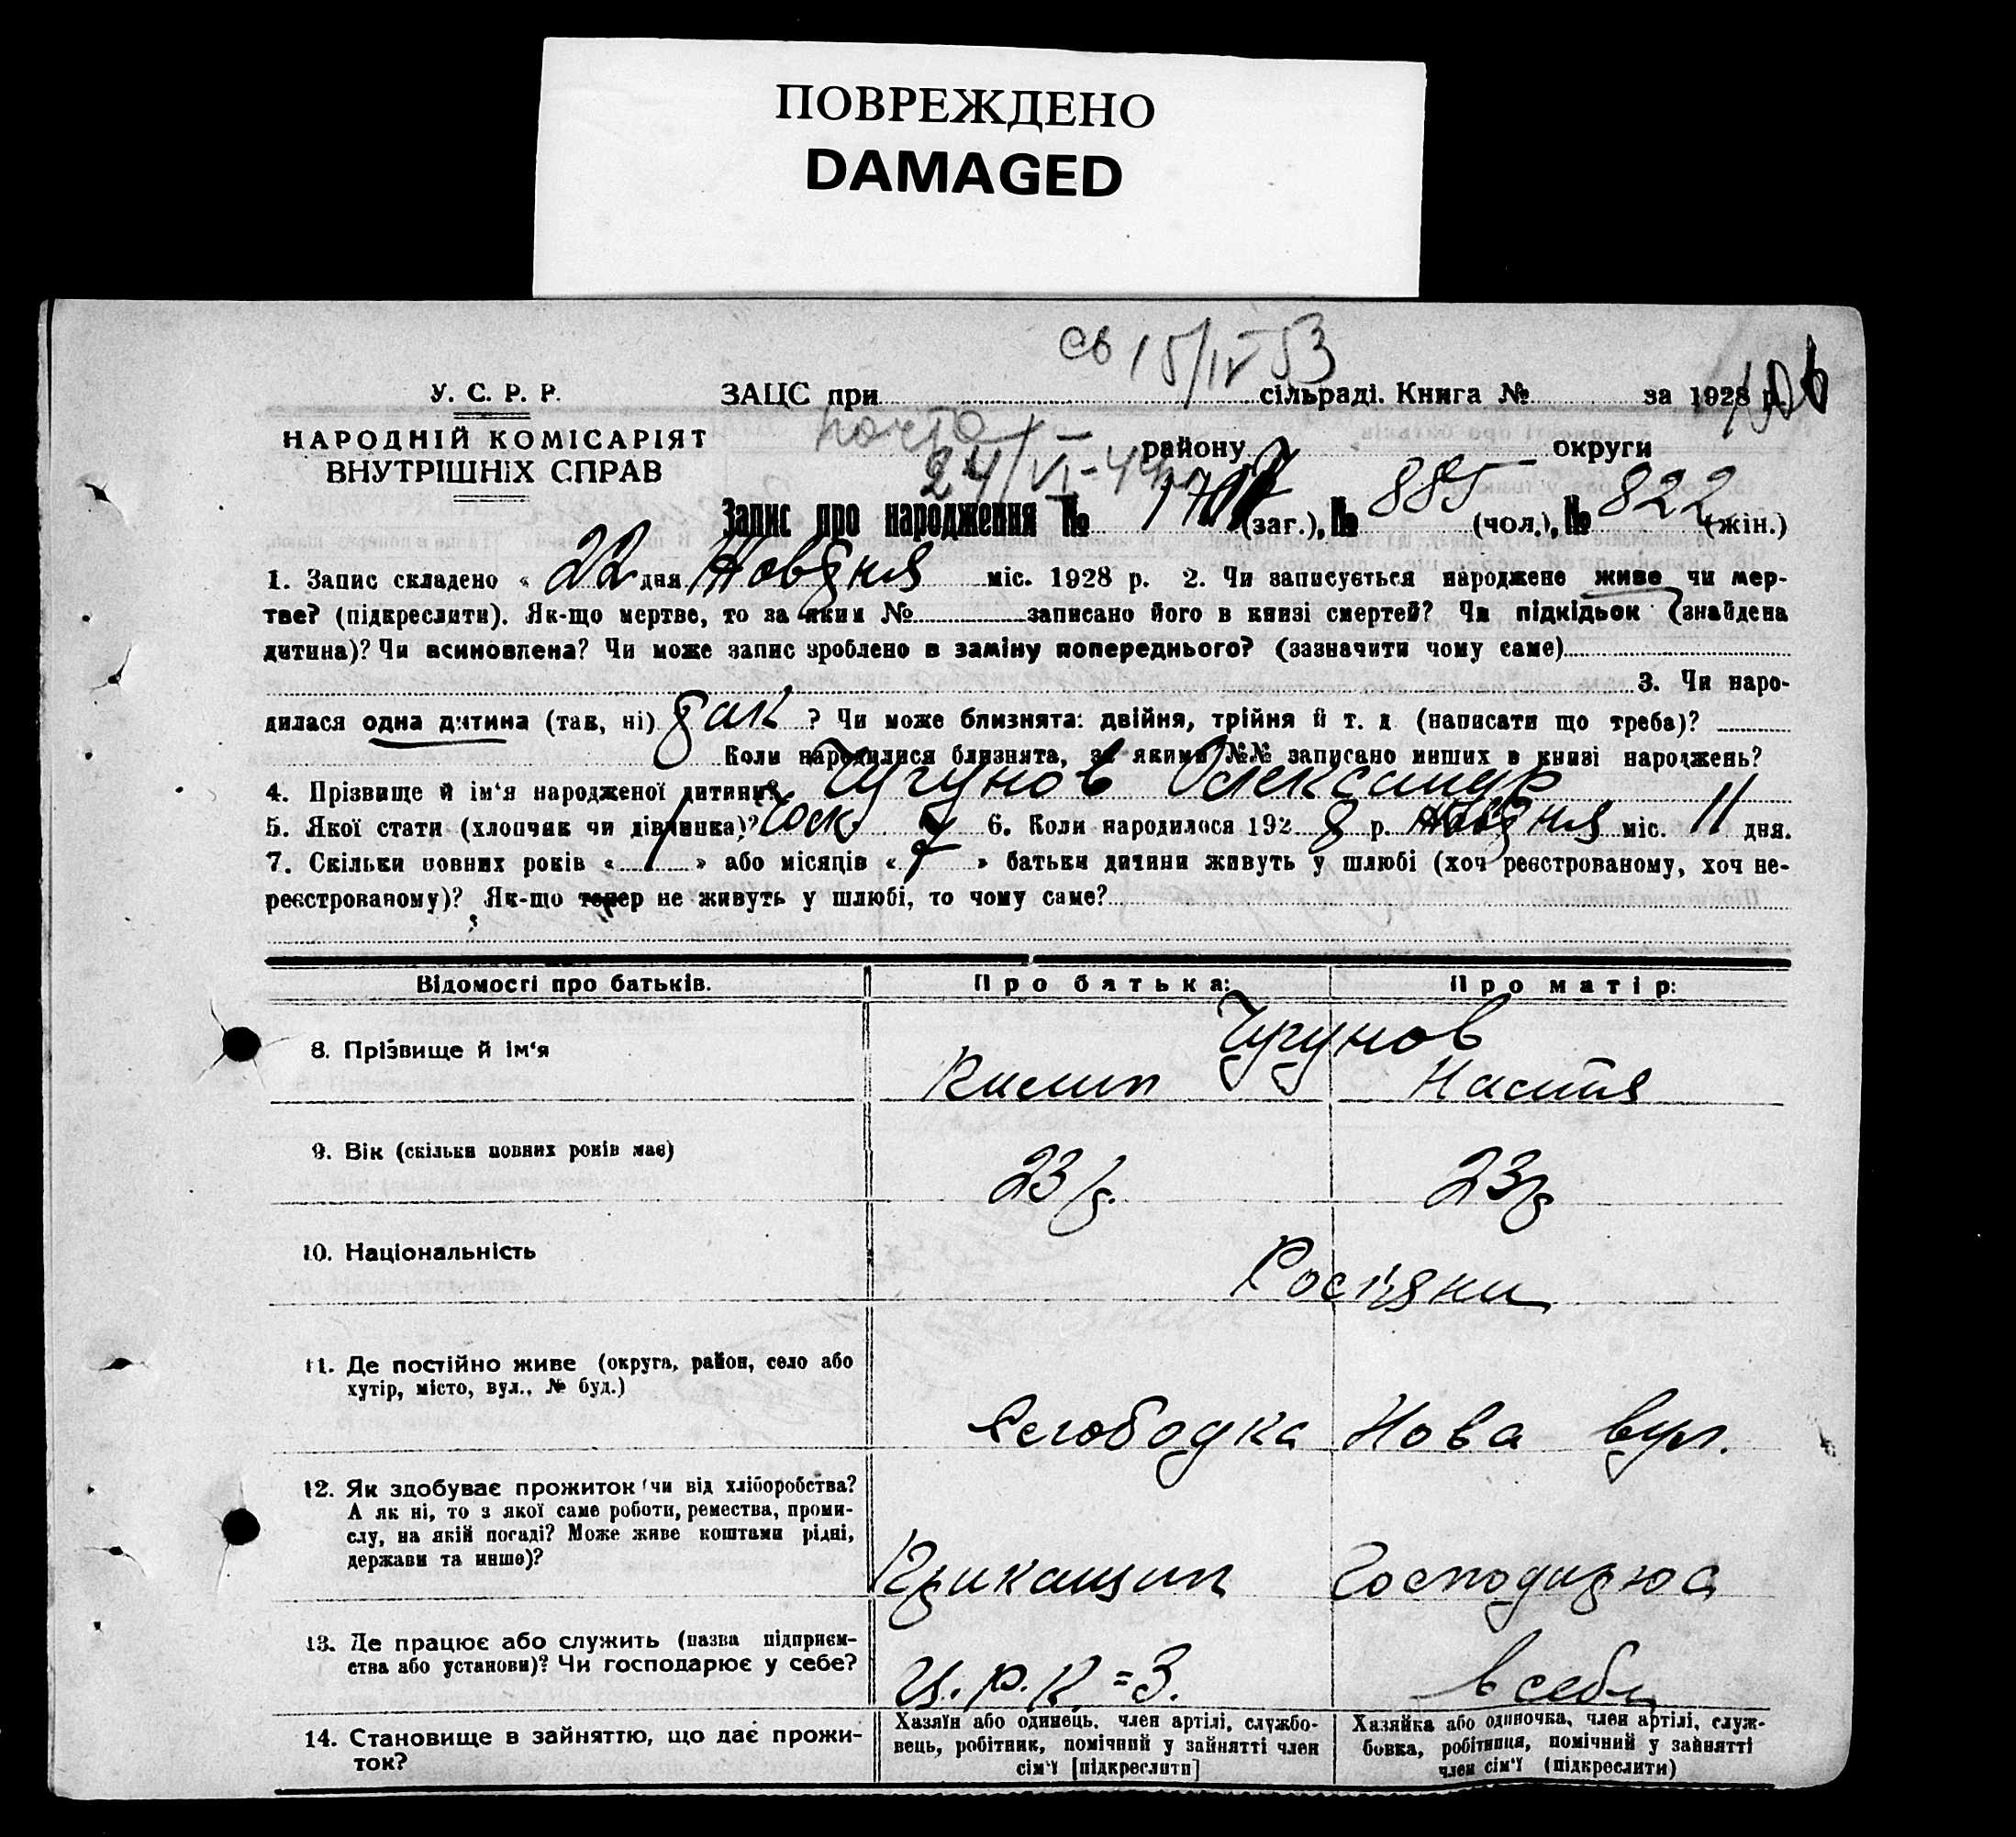 ПОВРЕЖДЕНО
DAMAGED
св 15/IV 53
У. С. Р. Р.
НАРОДНІЙ КОМІСАРІЯТ
ВНУТРІШНІХ СПРАВ
ЗАЦС при сільраді. Книга № за 1928 р.
району округи
24/VI-
Запис про народження № (заг.), № 885 (чол.), № 822 (жін.)
1. Запис складено « 22 дня Жовдня міс. 1928 р. 2. Чи записується народжене живе чи мер-
тве? (підкреслити). Як-що мертве, то за яким № записано його в книзі смертей? Чи підкідьок (знайдена
дитина)? Чи всиновлена? Чи може запис зроблено в заміну попереднього? (зазначити чому саме)
3. Чи наро-
дилася одна дитина (так, ні) так ? Чи може близнята: двійня, трійня й т. д. (написати що треба)?
Коли народилися близнята, за якими №№ записано инших в книзі народжень?
4. Прізвище й ім'я народженої дитини? Чугунов Олександр
5. Якої стати (хлопчик чи дівчинка)? 6. Коли народилося 1928 р. Жовдня міс. 11 дня.
7. Скільки повних років « 1 » або місяців « 7 » батьки дитини живуть у шлюбі (хоч реєстрованому, хоч не-
реєстрованому)? Як-що тепер не живуть у шлюбі, то чому саме?
Відомості про батьків. Про батька: Про матір:
Чугунов
8. Прізвище й ім'я Настя
9. Вік (скільки повних років має) 23 р. 23 р
10. Національність Росіяни
11. Де постійно живе (округа, район, село або
хутір, місто, вул., № буд.)
Слободка Нова вул.
12. Як здобуває прожиток (чи від хліборобства?
А як ні, то з якої саме роботи, ремества, проми-
слу, на якій посаді? Може живе коштами рідні,
держави та инше)?
Прикащик Господарює
13. Де працює або служить (назва підприєм-
ства або установи)? Чи господарює у себе?
Ц. Р. К. = 3. в себе
14. Становище в зайняттю, що дає прожи-
ток?
Хазяїн або одинець, член артілі, службо-
вець, робітник, помічний у зайнятті член
сім'ї [підкреслити]
Хазяйка або одиночка, член артілі, служ-
бовка, робітниця, помічний у зайнятті
член сім'ї (підкреслити)